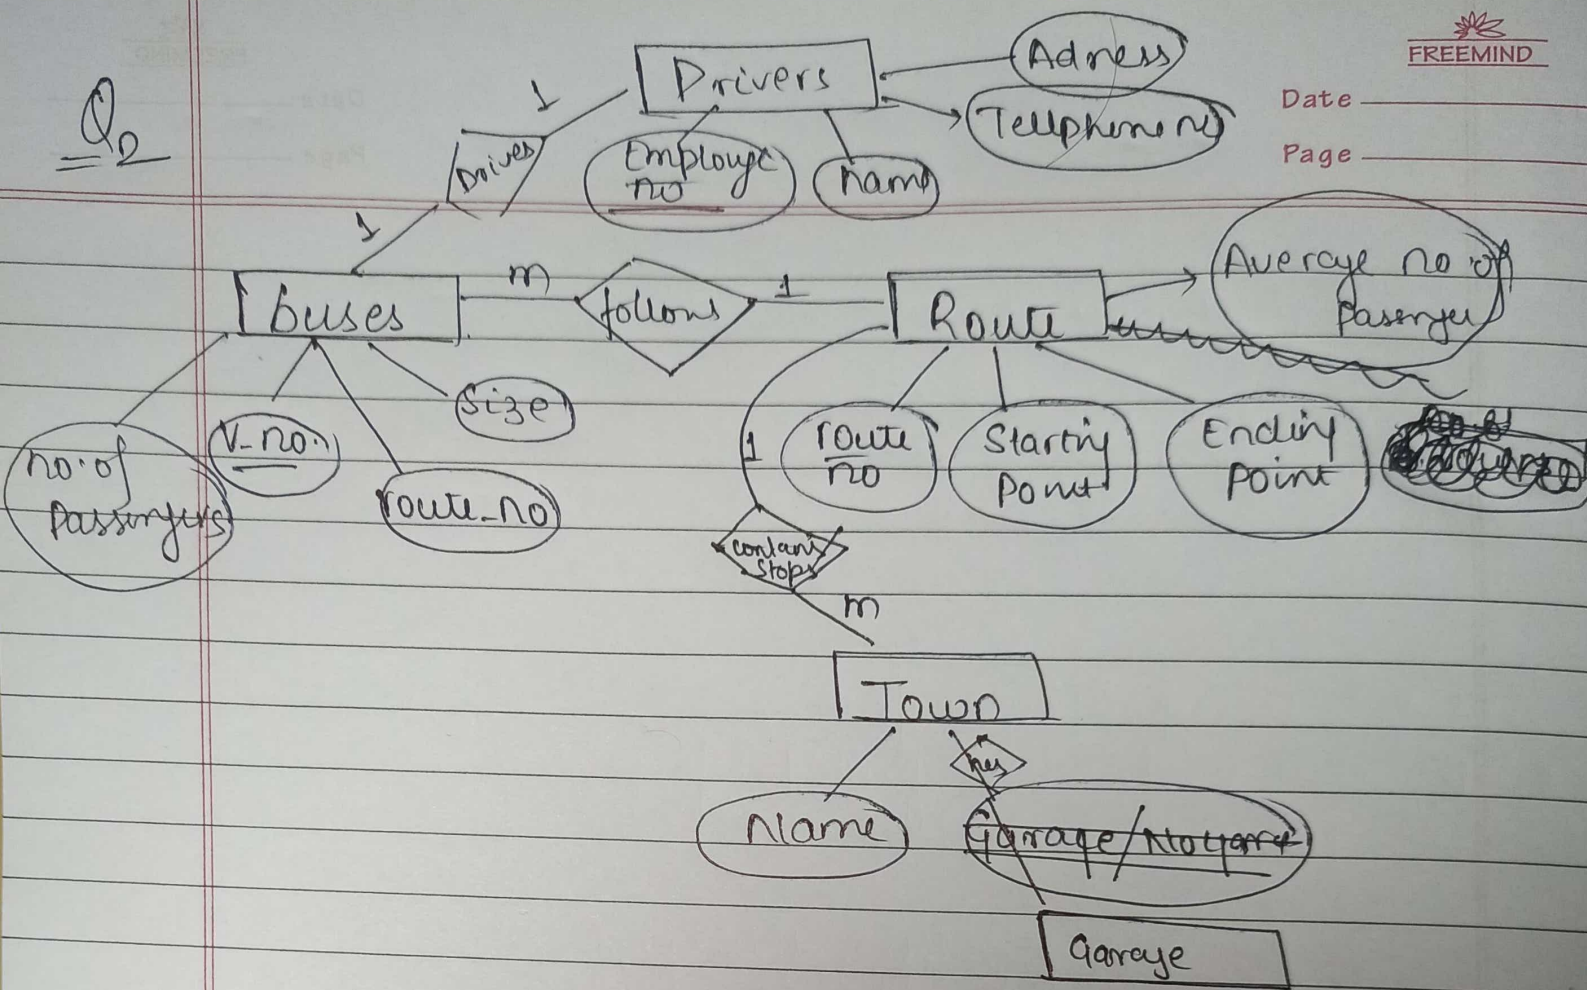 FREEMIND
Date
Page
Q2
Drivers
Adress
Telephone no
Employe
no
name
1
Drives
1
buses
m
follows
1
Route
Average no of
Passenger
Size
V-no.
no. of
Passengers
route_no
1
route
no
Starting
Point
Ending
point
contains
stops
m
Town
has
Name
Garage/No garage
Garage